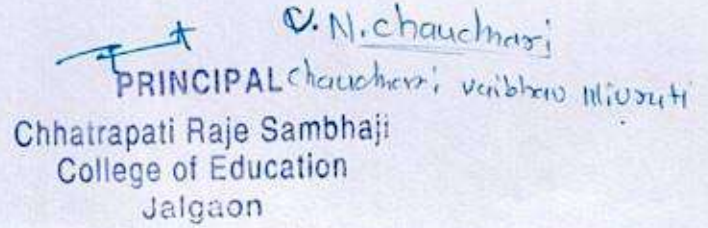 V. N. chaudhari
PRINCIPAL chaudhari vaibhav Nivruti
Chhatrapati Raje Sambhaji
College of Education
Jalgaon